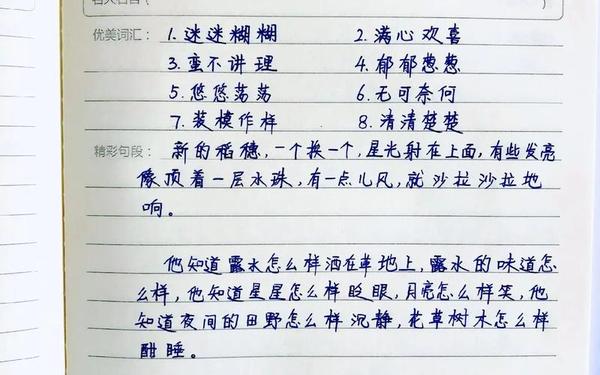 优美词汇： 1. 迷迷糊糊 2. 满心欢喜
3. 蛮不讲理 4. 郁郁葱葱
5. 悠悠荡荡 6. 无可奈何
7. 装模作样 8. 清清楚楚
精彩句段： 新的稻穗，一个挨一个，星光射在上面，有些发亮
像顶着一层水珠，有一点儿风，就沙拉沙拉地
响。
他知道露水怎么样洒在草地上，露水的味道怎
么样，他知道星星怎么样眨眼，月亮怎么样笑，他
知道夜间的田野怎么样沉静，花草树木怎么样
酣睡。